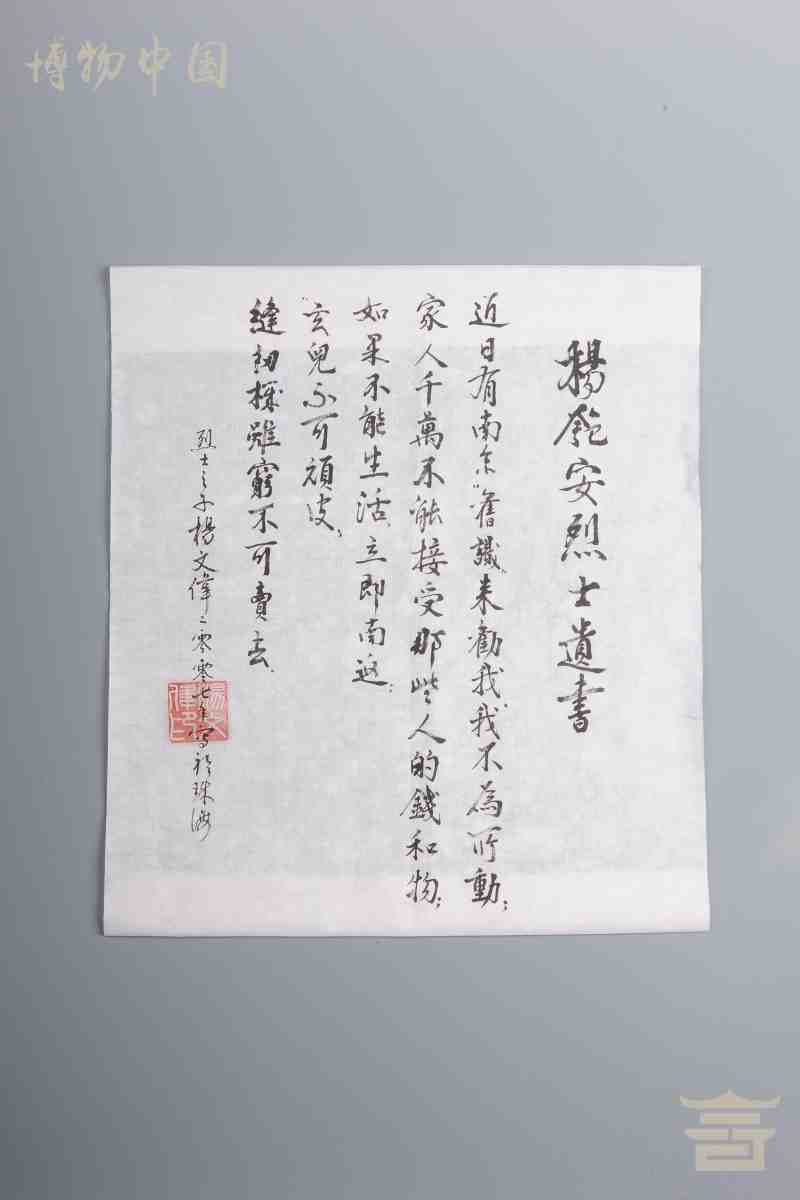 博物中国
楊匏安烈士遺書
近日有南京"舊識"来勸我,我不為所動;
家人千萬不能接受那些人的錢和物;
如果不能生活,立即南返;
玄兒不可頑皮;
縫紉機雖窮不可賣去.
烈士之子楊文偉二零零七年寫於珠海
楊文偉印